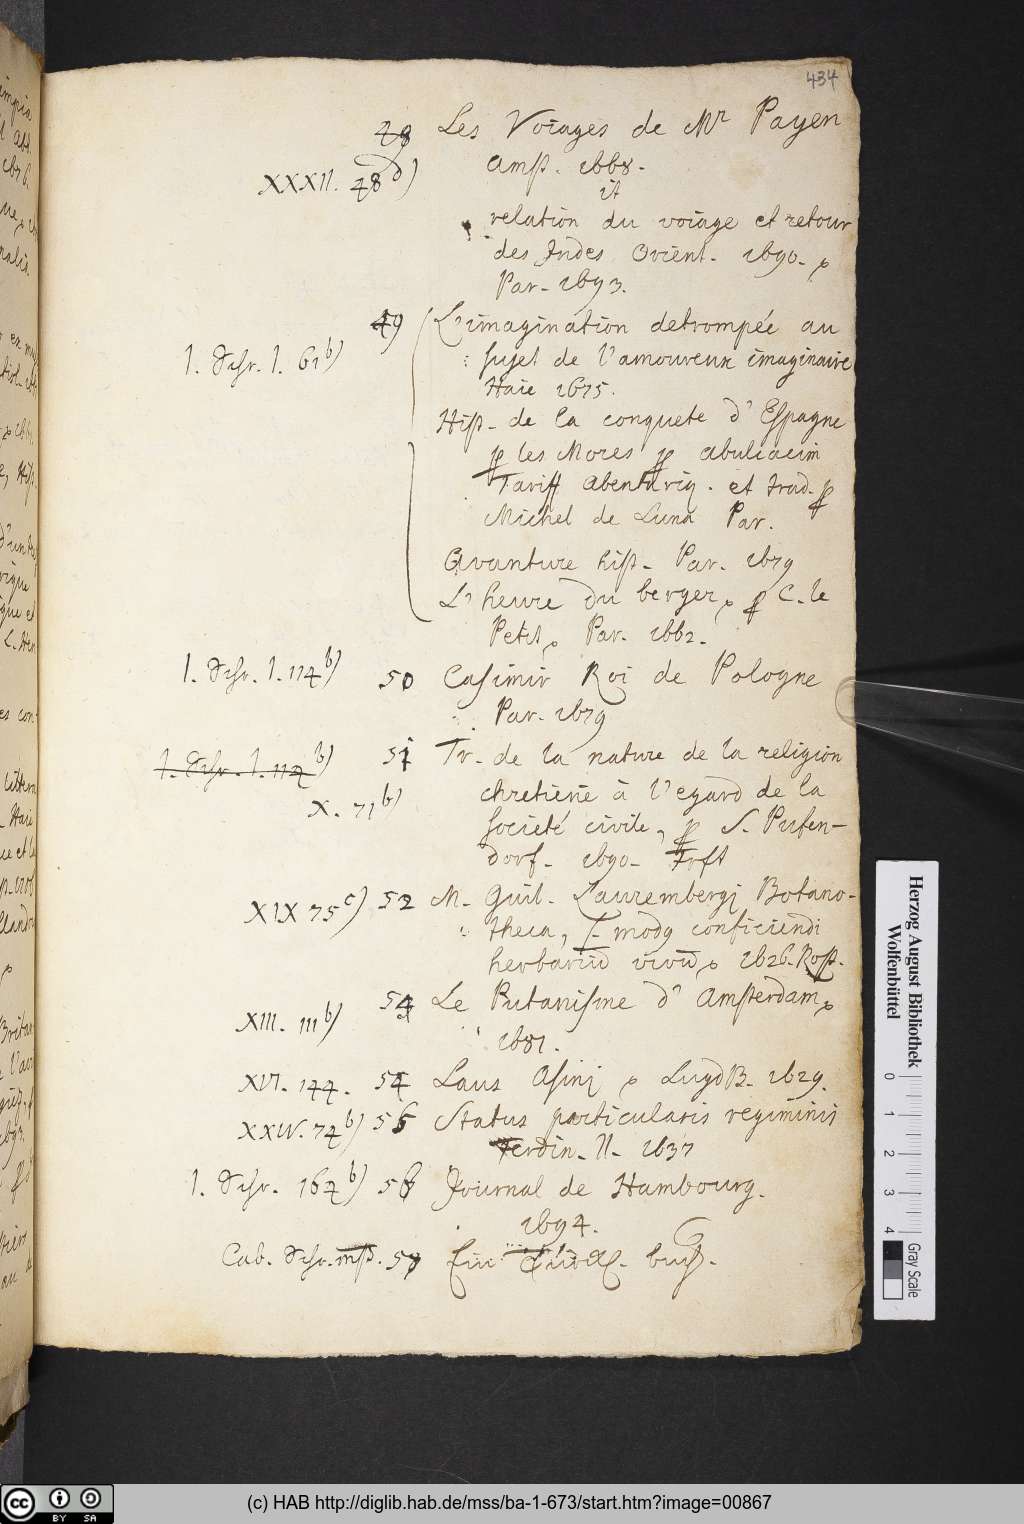 434
48 Les Voiages de Mr Payen
Amst. 1668.
XXXII. 48 d)
it
relation du voiage et retour
des Indes Orient. 1690.
Par. 1693.
49 L'imagination detrompée au
1. Schr. 1. 61 b)
sujet de l'amoureux imaginaire
Haie 1675.
Hist. de la conquete d'Espagne
les Mores abulcacim
Tariff Abentariq. et trad.
Michel de Luna Par.
Avanture hist. Par. 1679
L'heure du berger, C. le
Petit, Par. 1662.
1. Schr. 1. 114 b) 50 Casimir Roi de Pologne
Par. 1679
1. Schr. 1. 114 b) 51 Tr. de la nature de la religion
X. 71 b)
chretiene à l'egard de la
societé civile, S. Pufen-
dorf. 1690. Frft
XIX 75 c) 52 M. Guil. Laurembergj Botano-
theca, mody conficiendi
herbariu vivu 1626. Rost.
54 Le Putanisme d'Amsterdam
XIII. 111 b)
1681.
XVI. 144. 54 Laus Asinj LugdB. 1629.
XXIV. 74 b) 55 Status particularis regiminis
Ferdin. II. 1637
1. Schr. 164 b) 56 Journal de Hambourg.
1694.
Cab. Schr. msst. 57 Ein buch.
Herzog August Bibliothek
Wolfenbüttel
0 1 2 3 4
Gray Scale
cc BY SA
(c) HAB http://diglib.hab.de/mss/ba-1-673/start.htm?image=00867